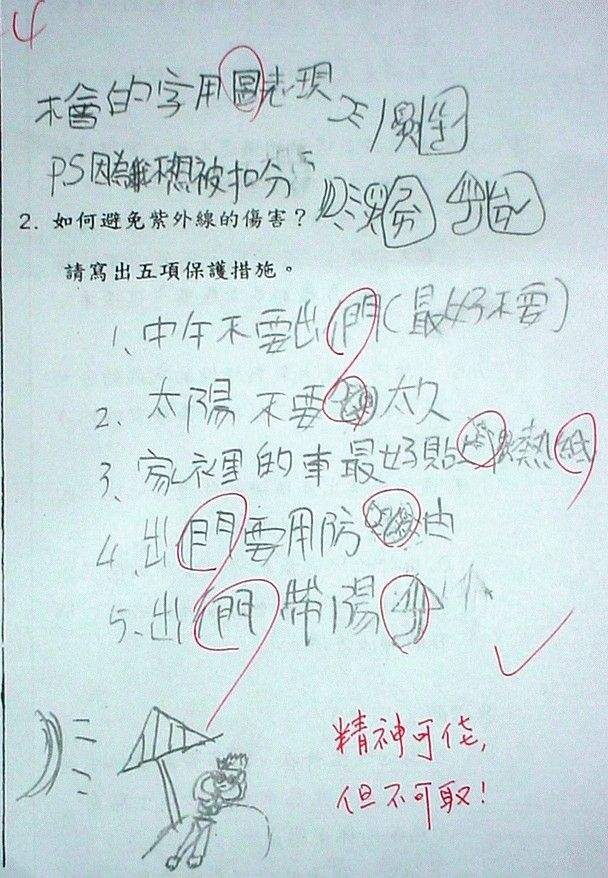 -4
不會的字用圖表現
PS因為不想被扣分
2. 如何避免紫外線的傷害？
請寫出五項保護措施。
1、中午不要出門(最好不要)
2、太陽不要太久
3、家裡的車最好貼熱紙
4、出門要用防由
5、出門帶陽
精神可佳，
但不可取！